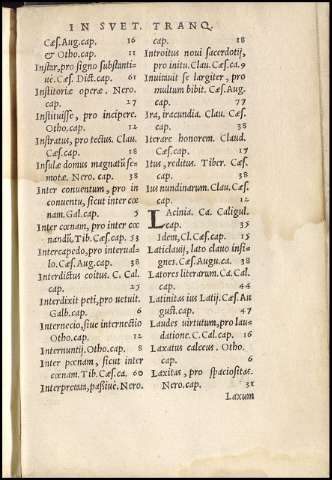 IN SVET. TRANQ.
Cæs. Aug. cap. 16
& Otho. cap. 11
Instar, pro signo substanti-
uè. Cæs. Dict. cap. 61
Institoriæ operæ. Nero.
cap. 27
Instituisse, pro incipere.
Otho. cap. 12
Instratus, pro tectus. Claud.
Cæs. cap. 18
Insulæ domus magnatũ se-
motæ. Nero. cap. 38
Inter conuentum, pro in
conuentu, sicut inter cœ
nam. Gal. cap. 5
Inter cœnam, pro inter cœ
nandũ. Tib. Cæs. cap. 53
Intercapedo, pro interual-
lo. Cæs. Aug. cap. 38
Interdictus coitus. C. Cal.
cap. 25
Interdixit peti, pro uetuit.
Galb. cap. 6
Internecio, siue internectio
Otho. cap. 12
Internuntij. Otho. cap. 8
Inter pœnam, sicut inter
cœnam. Tib. Cæs. ca. 60
Interpretan, paßiuè. Nero.
cap. 18
Introitus noui sacerdotij,
pro initu. Clau. Cæs. ca. 9
Inuinuit se largiter, pro
multum bibit. Cæs. Aug.
cap. 77
Ira, iracundia. Clau. Cæs.
cap. 38
Iterare honorem. Claud.
Cæs. cap. 17
Itus, reditus. Tiber. Cæs.
cap. 38
Ius nundinarum. Clau. Cæs.
cap. 12
Lacinia. Ca. Caligul.
cap. 35
Idem, Cl. Cæs. cap. 15
Laticlauij, lato clauo insi-
gnes. Cæs. Augu. ca. 38
Latores literarum. Ca. Cal.
cap. 44
Latinitas ius Latij. Cæs. Au
gust. cap. 47
Laudes uirtutum, pro lau
datione. C. Cal. cap. 16
Laxatus calceus. Otho.
cap. 6
Laxitas, pro spaciositas.
Nero. cap. 31
Laxum